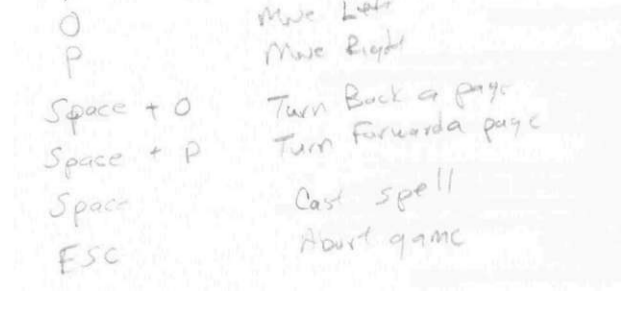 O Move Left
P Move Right
Space + O Turn Back a page
Space + P Turn Forward a page
Space Cast spell
ESC Abort game